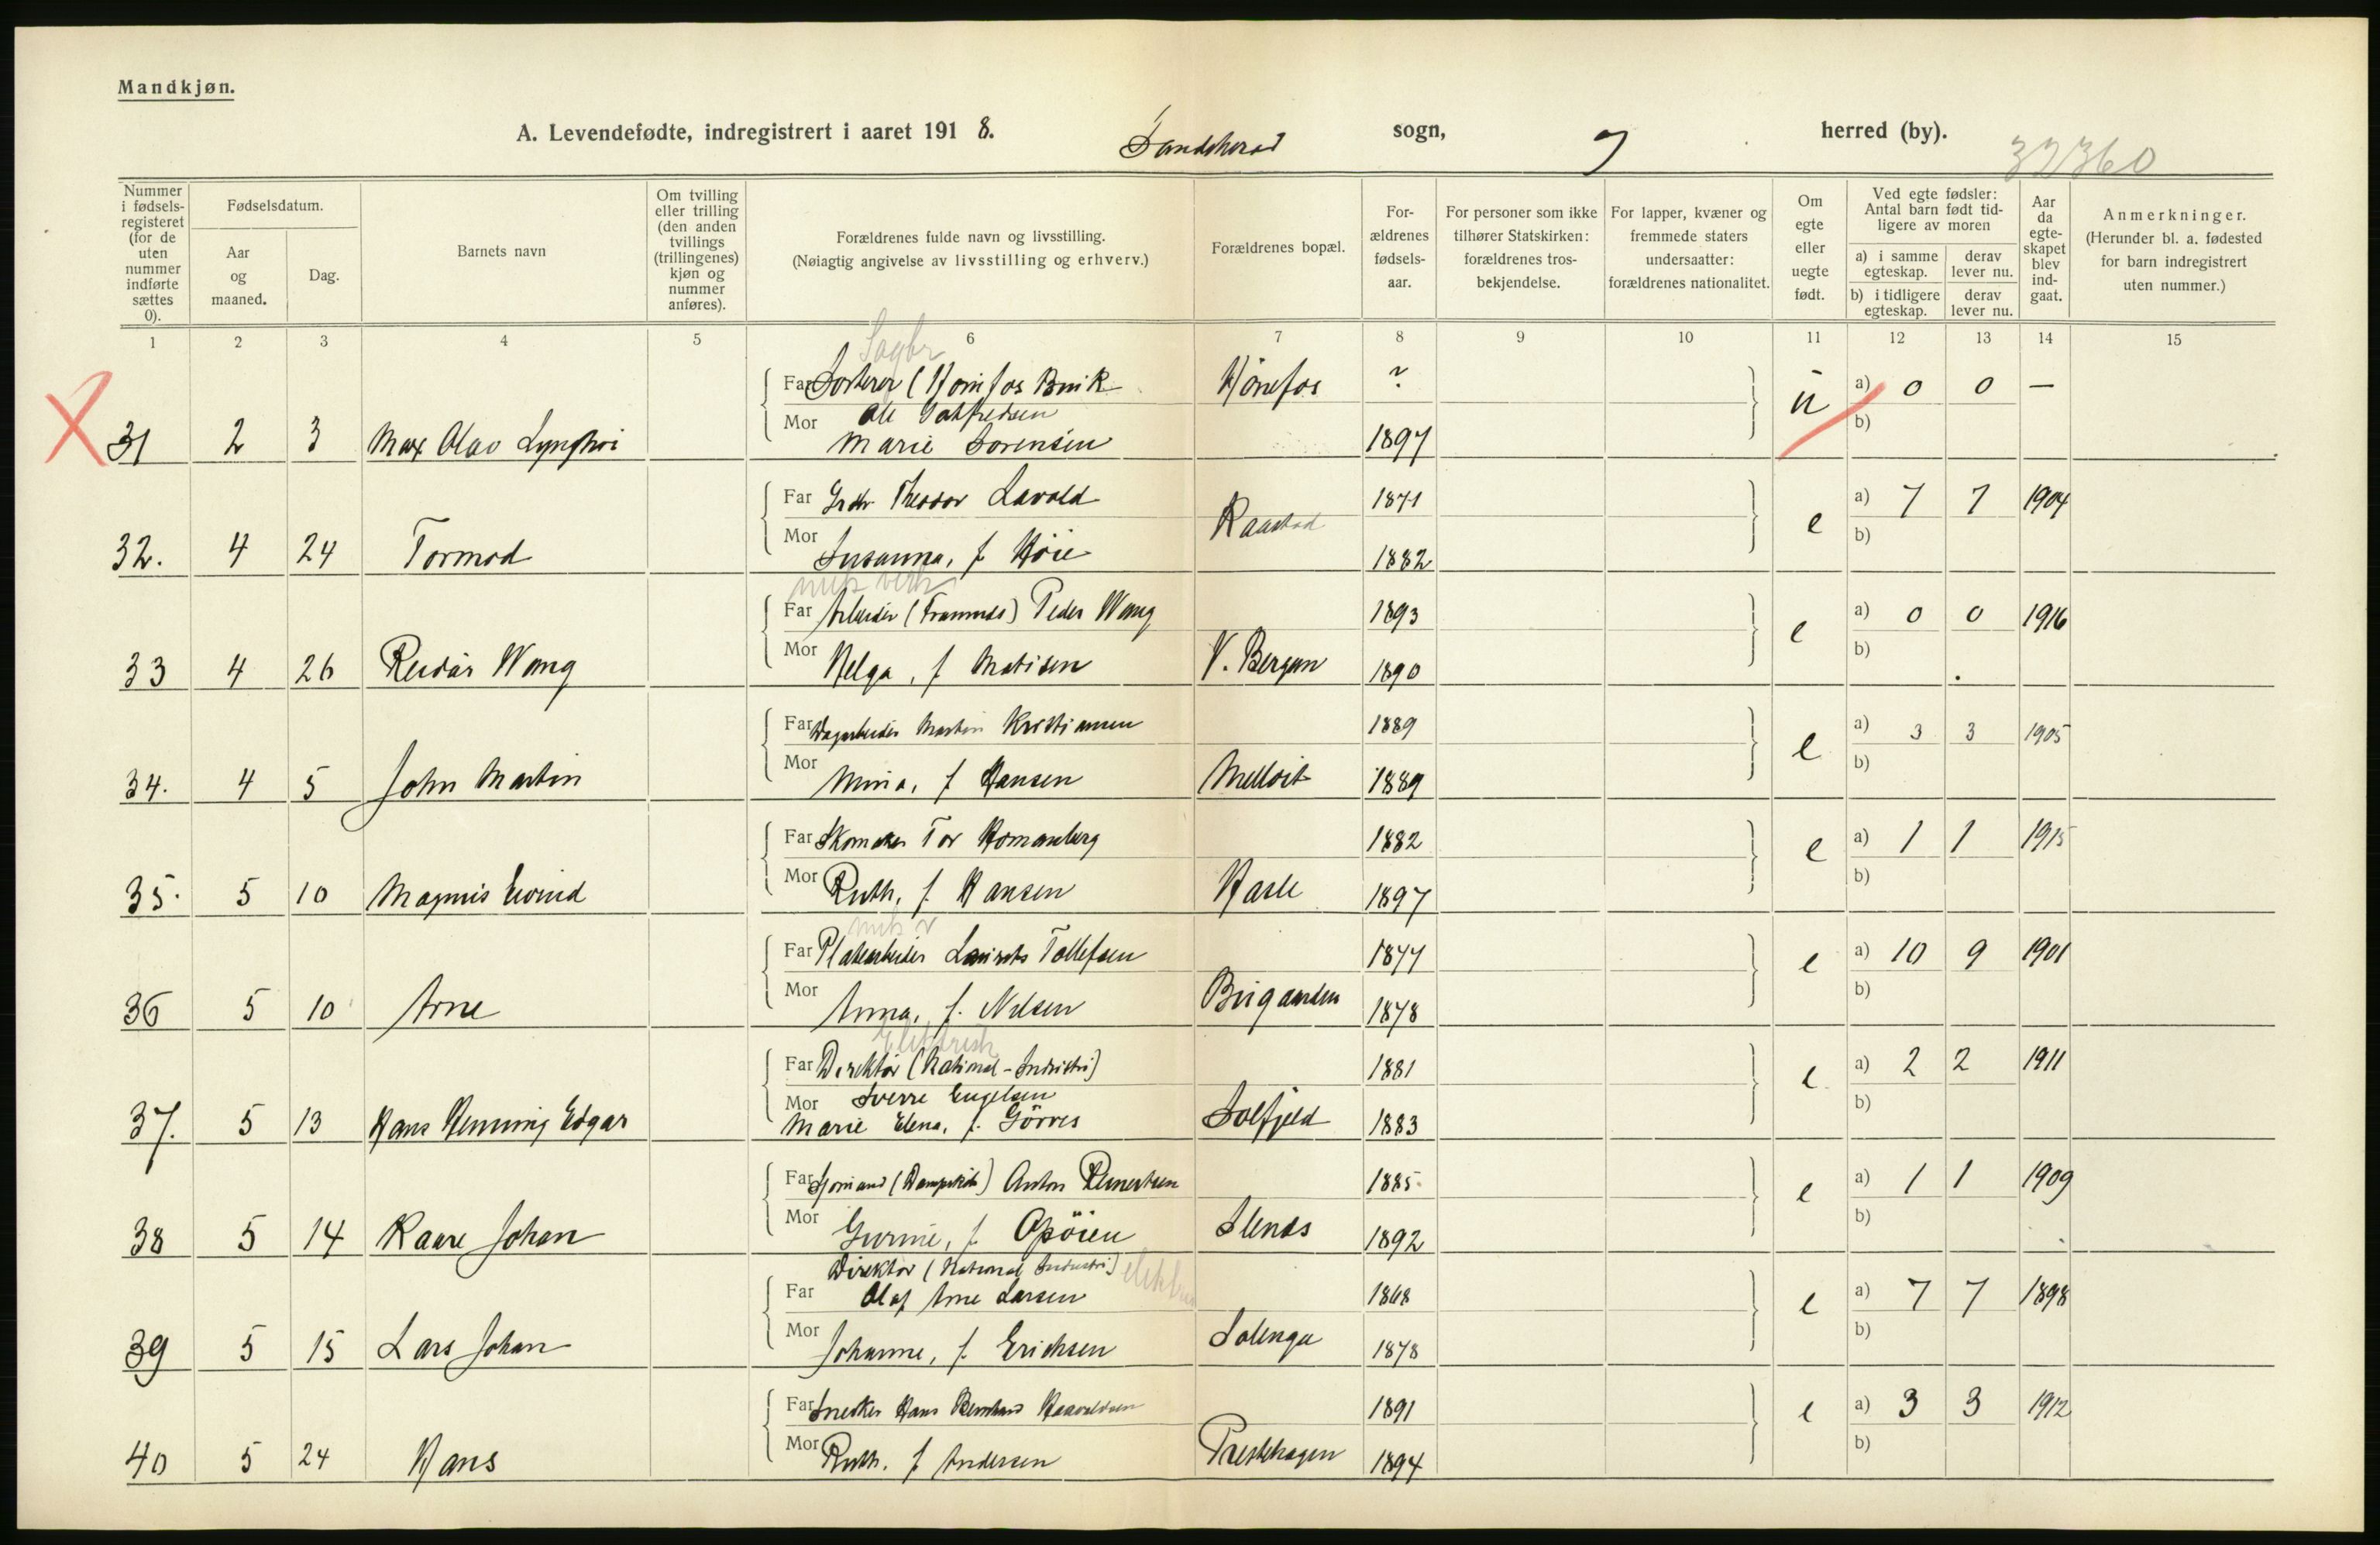 Mandkjøn.
A. Levendefødte, indregistrert i aaret 1918. Sandeherad sogn, herred (by).
32360
Nummer i fødsels-registeret (for de uten nummer indførte sættes 0).
Fødselsdatum.
Aar og maaned.
Dag.
Barnets navn
Om tvilling eller trilling (den anden tvillings (trillingenes) kjøn og nummer anføres).
Forældrenes fulde navn og livsstilling.
(Nøiagtig angivelse av livsstilling og erhverv.)
Forældrenes bopæl.
For-ældrenes fødsels-aar.
For personer som ikke tilhører Statskirken: forældrenes tros-bekjendelse.
For lapper, kvæner og fremmede staters undersaatter: forældrenes nationalitet.
Om egte eller uegte født.
Ved egte fødsler: Antal barn født tid-ligere av moren
a) i samme egteskap. derav lever nu.
b) i tidligere egteskap. derav lever nu.
Aar da egte-skapet blev ind-gaat.
Anmerkninger.
(Herunder bl. a. fødested for barn indregistrert uten nummer.)
1 2 3 4 5 6 7 8 9 10 11 12 13 14 15
Sagbr
Far Sorterer (Hønefos Bruk Hønefos ? u a) 0 0 —
Ole
X 31 2 3 Max Olav Mor Marie Sorensen 1897 b)
Far Theodor Lavold 1871 e a) 7 7 1904
32. 4 24 Tormod Mor Susanna, f. Høie Raastad 1882 b)
mek verk
Far Arbeider (Framnæs) Peder Wang 1893 e a) 0 0 1916
33 4 26 Reidar Wang Mor Helga, f. Matisen V. Bergan 1890 b)
Far Martin Kristiansen 1889 e a) 3 3 1905
34. 4 5 John Martin Mor Mina, f. Hansen 1889 b)
Far Skomaker Tor Romanberg 1882 e a) 1 1 1915
35. 5 10 Magnus Eivind Mor Ruth, f. Hansen Hasle 1897 b)
mek v
Far Platearbeider Laurits Tollefsen 1877 e a) 10 9 1901
36 5 10 Arne Mor Anna, f. Nilsen Bugaarden 1878 b)
Elektrisk
Far Direktør (National-Industri) 1881 e a) 2 2 1911
Sverre Engelsen
37. 5 13 Hans Henning Edgar Mor Marie Elena, f. Görres Solfjeld 1883 b)
Far Sjømand (Dampskib) Anton Reinertsen 1885 e a) 1 1 1909
38 5 14 Kaare Johan Mor Gurine, f. Opöien 1892 b)
Direktør (National Industri) elektr
Far Olaf Arne Larsen 1868 e a) 7 7 1898
39 5 15 Lars Johan Mor Johanne, f. Erichsen Solenga 1878 b)
Far Snedker Hans Bernhard Haavaldsen 1891 e a) 3 3 1912
40 5 24 Hans Mor Ruth, f. Andersen Prestehagen 1894 b)